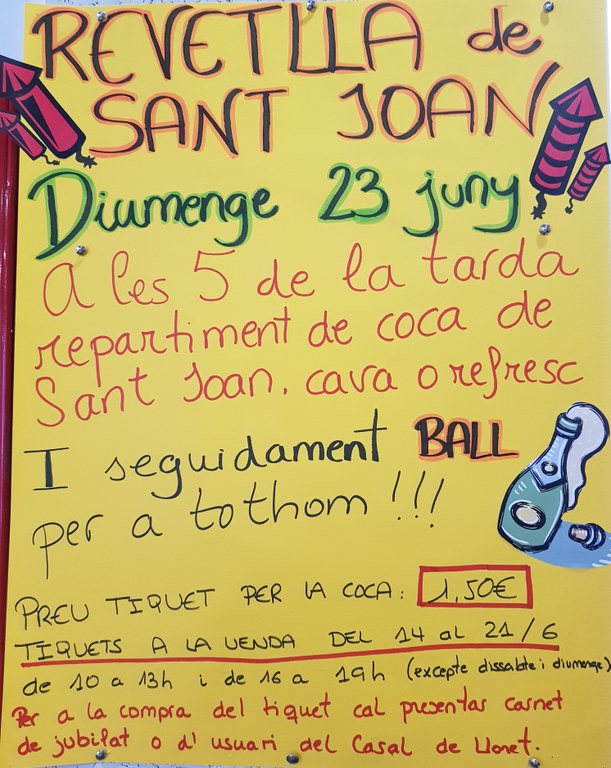 REVETLLA de
SANT JOAN
Diumenge 23 juny
A les 5 de la tarda
repartiment de coca de
Sant Joan. cava o refresc
I seguidament BALL
per a tothom!!!
PREU TIQUET PER LA COCA: 1,50€
TIQUETS A LA VENDA DEL 14 al 21/6
de 10 a 13h i de 16 a 19h (excepte dissabte i diumenge)
Per a la compra del tiquet cal presentar carnet
de jubilat o d'usuari del Casal de Lloret.